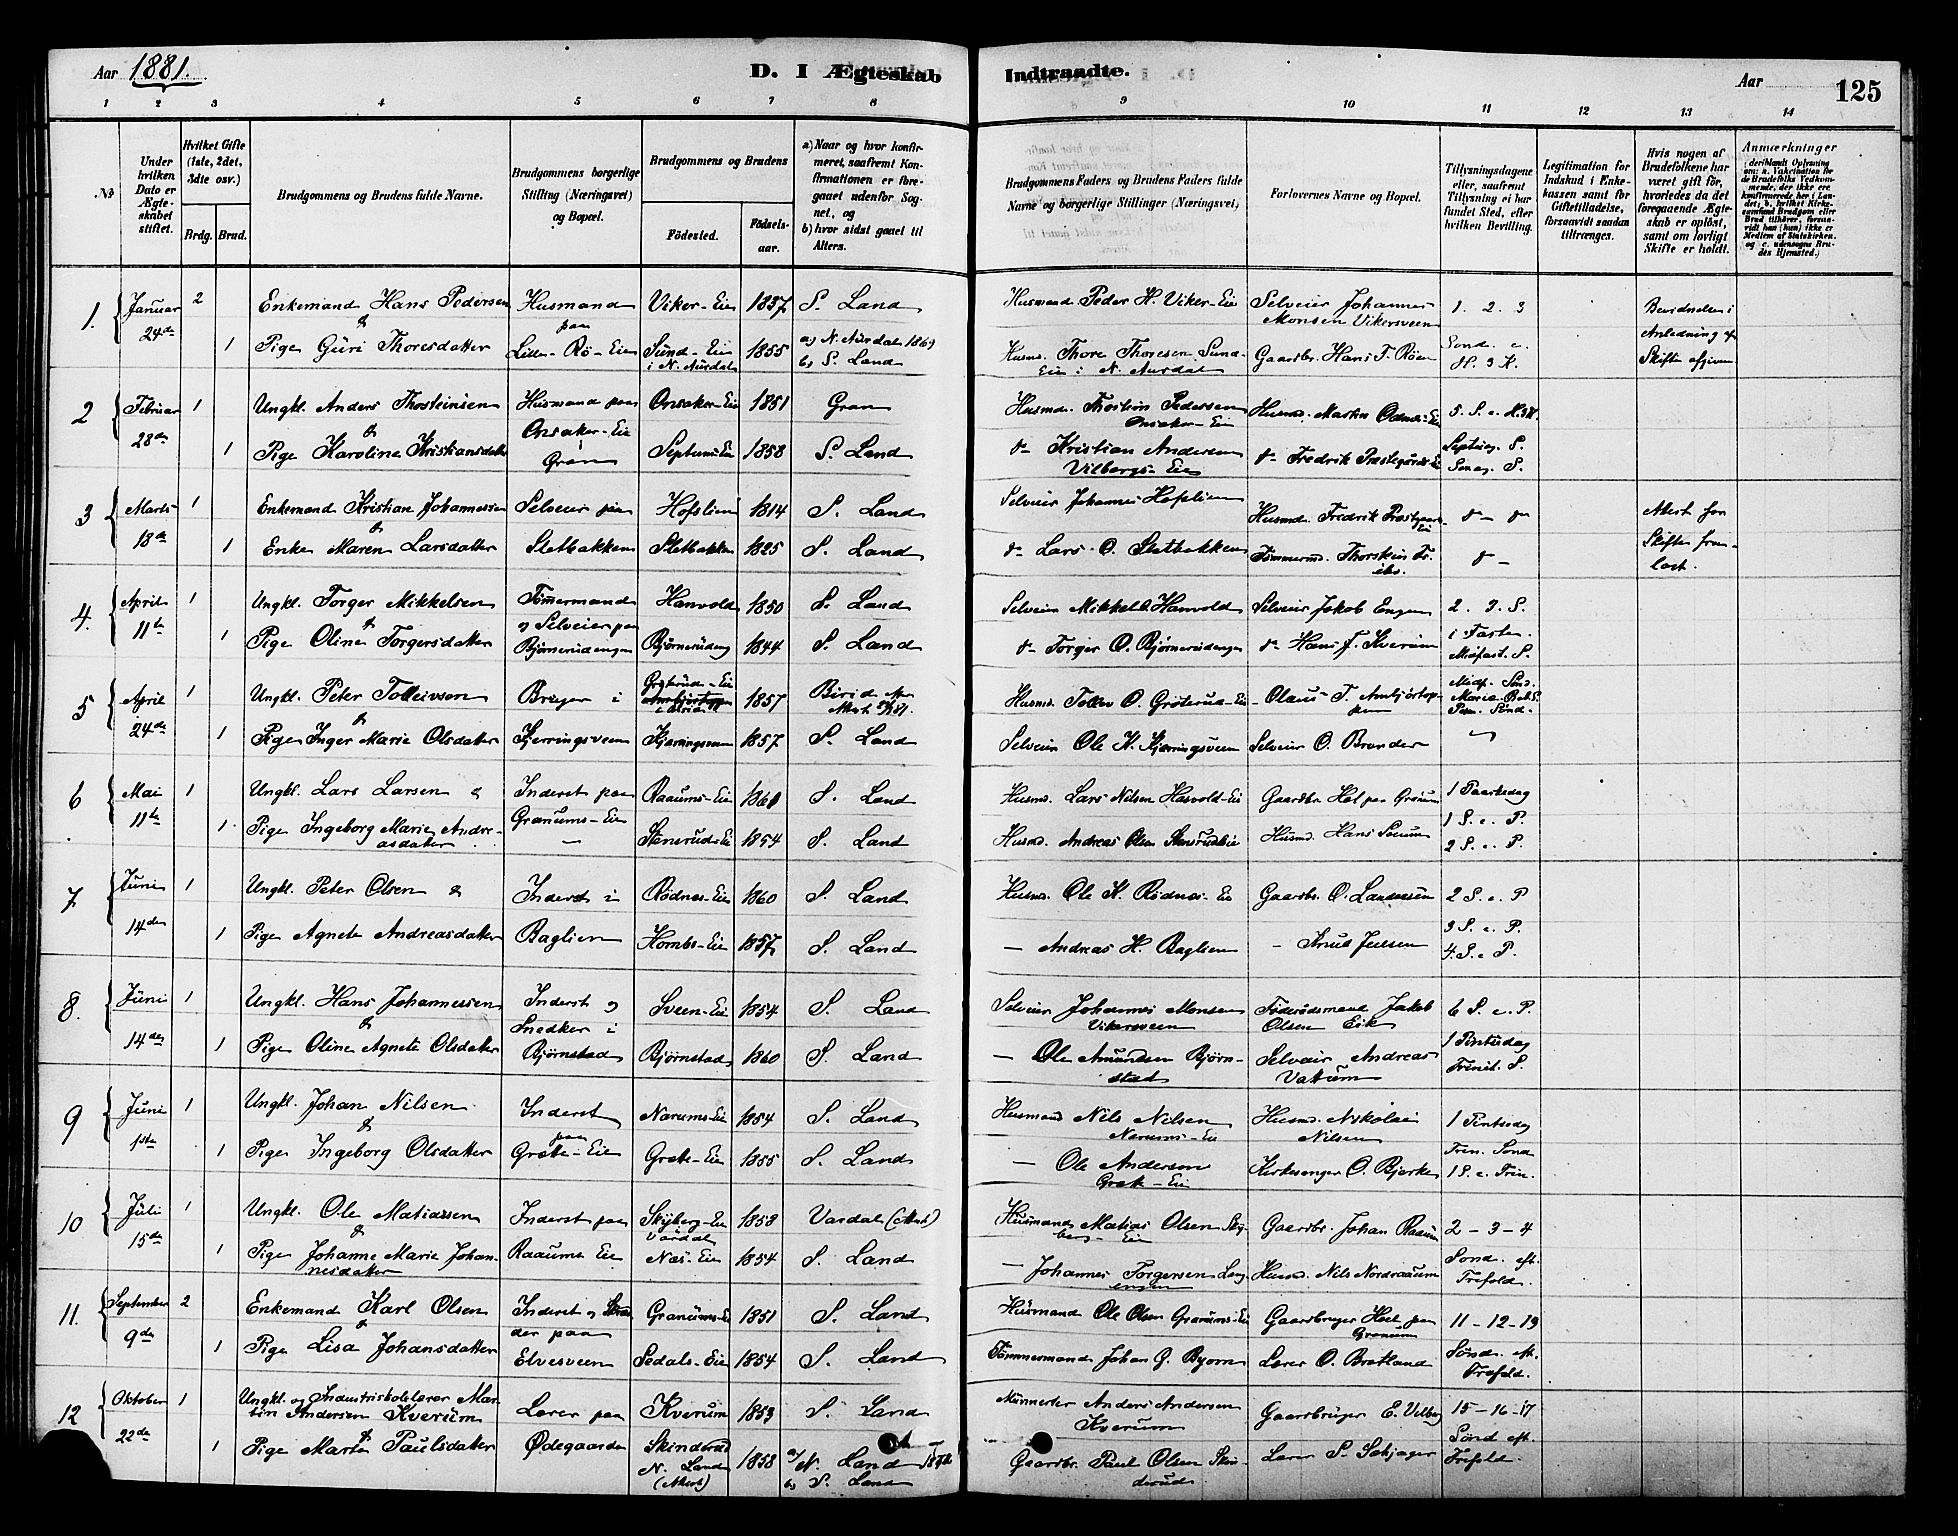 Aar 1881. D. I Ægteskab Indtraadte. Aar 125
1 2 3 4 5 6 7 8 9 10 11 12 13 14
№
Under hvilken Dato er Ægteskabet stiftet.
Hvilket Gifte (1ste, 2det, 3die osv.)
Brdg. Brud.
Brudgommens og Brudens fulde Navne.
Brudgommens borgerlige Stilling (Næringsvei) og Bopæl.
Brudgommens og Brudens
Fødested. Fødselsaar.
a) Naar og hvor konfirmeret, saafremt Konfirmationen er foregaaet udenfor Sognet, og
b) hvor sidst gaaet til Alters.
Brudgommens Faders og Brudens Faders fulde Navne og borgerlige Stillinger (Næringsvei)
Forlovernes Navne og Bopæl.
Tillysningsdagene eller, saafremt Tillysning ei har fundet Sted, efter hvilken Bevilling.
Legitimation for Indskud i Enkekassen samt for Giftetilladelse, forsaavidt saadan tiltrænges.
Hvis nogen af Brudefolkene har været gift før, hvorledes da det foregaaende Ægteskab er opløst, samt om lovligt Skifte er holdt.
Anmærkninger
1. Januar 2 Enkemand Hans Pedersen Husmand Viker-Eie 1837 S. Land Husmand Peder H. Viker-Eie Selveier Johannes Monsen Vikersveen 1. 2. 3 Bevidnelse i
24de & paa Anledning af
1 Pige Guri Thoresdatter Lille-Rø-Eie Sund-Eie i N. Aurdal 1855 a) N. Aurdal 1869 b) S. Land Husmd. Thore Thoresen Sund-Eie i N. Aurdal Gaardbr. Hans T. Røen Sond. e. H. 3 K. Skifte afgiven
2 Februar 1 Ungkl. Anders Thosteinsen Husmand paa Onsaker-Eie 1851 Gran Husmd. Thostein Pedersen Onsaker-Eie 5. S. e. H. 3 K.
28de & Onsaker-Eie i
1 Pige Karoline Kristiansdatter Gran 1858 S. Land Kristian Andersen Vilbergs-Eie Fredrik Septuag. S.
3 Marts 1 Enkemand Kristian Johannessen Selveier paa Hofslien 1814 S. Land Selveier Johannes Hofslien Husmd. Fredrik Attest for
18de & Skifte frem-
1 Enke Maren Larsdatter Sletbakken Sletbakken 1825 S. Land Lars O. Sletbakken Tømmermd. Thorstein lagt.
4. April 1 Ungkl. Torger Mikkelsen Tømmermand Hanvold 1850 S. Land Selveier Mikkel Hanvold Selveier Jakob Engen 2. 3. S.
11te & og Selveier paa i Fasten
1 Pige Oline Torgersdatter Bjørnerudengen Bjørnerudeng 1844 S. Land Torger O. Bjørnerudengen Hans J. Kverum Midfast. S.
5 April 1 Ungkl. Peter Tolleivsen Bruger i Grøterud-Eie 1857 Birid Husmd. Tollev O. Grøterud-Eie Olaus T. Midf. Sond.
24de & Maria
1 Pige Inger Marie Olsdatter Kjerringsveen Kjerringsveen 1857 S. Land Selveier Ole K. Kjærringsveen Selveier O. Brenden
6 Mai 1 Ungkl. Lars Larsen & Inderst paa Raaums-Eie 1861 S. Land Husmd. Lars Nilsen Hasvold-Eie Gaardbr. Hol paa Granum 1 Paaskedag
11te Granums-Eie 1 S. e. P.
1 Pige Ingeborg Marie Andreasdatter — Stensrud-Eie 1854 S. Land Husmd. Andreas Olsen Stensrudeie Husmd. Hans 2 S. e. P.
7 Juni 1 Ungkl. Peter Olsen & Inderst i Rødnæs-Eie 1860 S. Land Husmd. Ole K. Rødnæs-Eie Gaardbr. O. Landaasen 2 S. e. P
14de 3 S. e. P.
1 Pige Agnete Andreasdatter Baglien Hombs-Eie 1857 S. Land — Andreas H. Baglien — Knud Juelsen 4. S. e P.
8. Juni 1 Ungkl. Hans Johannessen Inderst og Sveen-Eie 1854 S. Land Selveier Johannes Monsen Vikersveen Føderådsmand Jakob Olsen Eik 6 S. e. P.
14de & Snedker i 1 Pintsedag
1 Pige Oline Agnete Olsdatter Bjørnstad Bjørnstad 1860 S. Land — Ole Amundsen Bjørnstad Selveier Andreas Vatum Trinit. S.
9 Juni 1 Ungkl. Johan Nilsen Inderst Narums-Eie 1854 S. Land Husmand Nils Nilsen Narums-Eie Husmd. Nikolai Nilsen 1 Pintsedag
1ste & paa Trin. Sond
1 Pige Ingeborg Olsdatter Grøte-Eie Grøte-Eie 1855 S. Land — Ole Andersen Grøte-Eie Kirkesanger O. Bjerke 1 S. e. Trin.
10 Juli 1 Ungkl. Ole Matiassen Inderst paa Skyberg-Eie Vardal 1858 Vardal (Attest) Husmand Matias Olsen Skyberg-Eie Gaardbr. Johan Raaum 2-3-4
15de & Sond. eft.
1 Pige Johanne Marie Johannesdatter Raaums Eie Næs-Eie 1854 S. Land — Johannes Torgersen Husmd. Nils Nordraaum Trefold.
11. September 2 Enkemand Karl Olsen Inderst og Granums-Eie 1851 S. Land Husmand Ole Olsen Granums-Eie Gaardbruger Hoel paa Granum 11-12-13
9de & der paa Sond. eft.
1 Pige Lisa Johansdatter Elvesveen Sedals-Eie 1854 S. Land Tømmermand Johan G. Lærer O. Bratland Trefold.
12 Oktober 1 Ungkl. og Industriskolelærer Martin Andersen Kverum Lærer paa Kverum 1853 S. Land Murmester Anders Andersen Kverum Gaardbruger E. Vilberg 15-16-17
22de & Sond eft.
1 Pige Marte Paulsdatter Ødegaarden Skinderud N. Land (Attest) 1858 a) N. Land b) S. Land Gaardbr. Paul Olsen Skinderud Lærer Trefold.